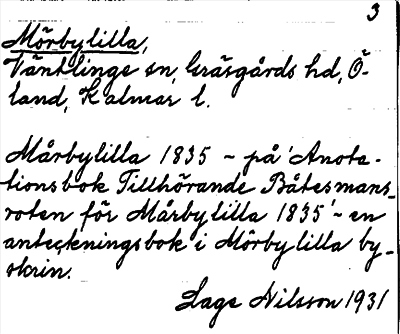 3
Mörbylilla,
Väntlinge sn, Gräsgårds hd, Ö-
land, Kalmar l.
Mårbylilla 1835 ~ på 'Anota-
tionsbok Tillhörande Båtesmans-
roten för Mårbylilla 1835' ~ en
anteckningsbok i Mörbylilla by-
skrin.
Lage Nilsson 1931